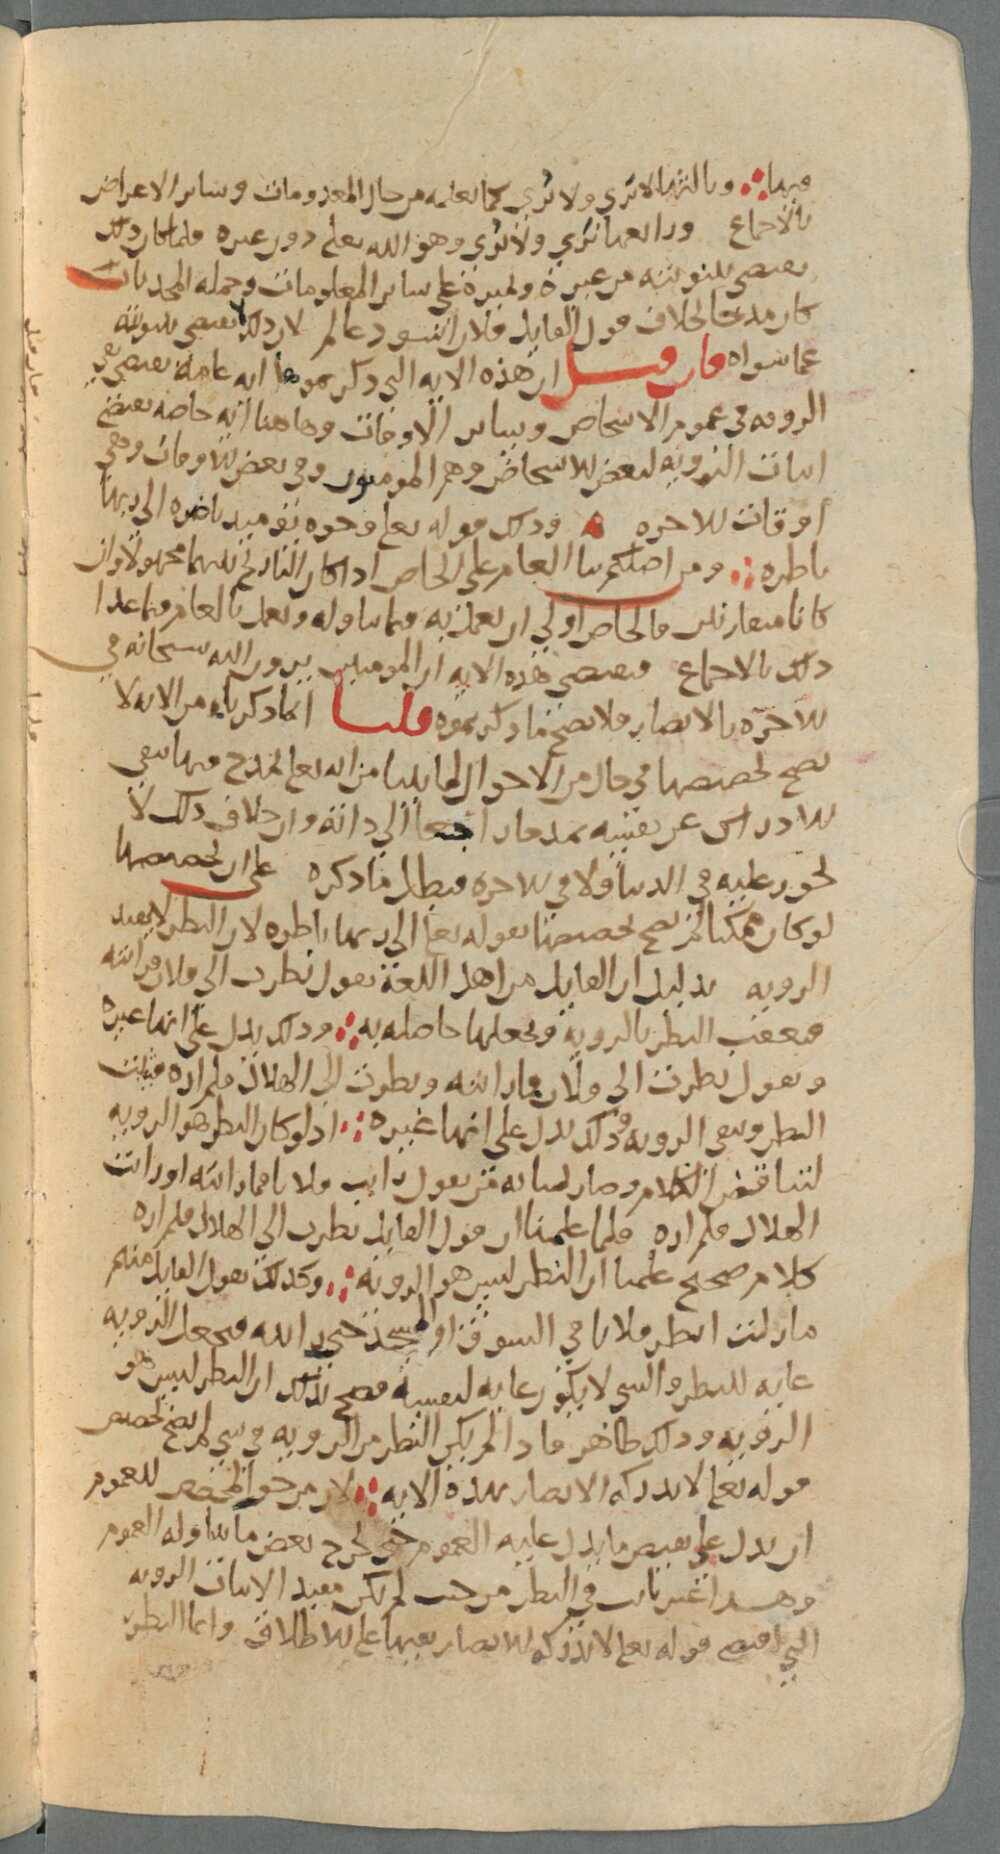 فيها وثالثها لا تَرى ولا تُرى كما نعلمه من حال المعدومات وسائر الاعراض
بالاجماع ورابعها تُرى ولا تَرى وهو الله تعالى دون غيره فلما كان ذلك
يقتضي بينونته من غيره وتميزه على سائر المعلومات وجملة المحدثات
كان مدحا بخلاف قول القائل فلان اسود عالم لان ذلك لا يقتضي بينونته
عما سواه فان قيل ان هذه الاية التي ذكرتموها اية عامة تقتضي نفي
الروية في عموم الاشخاص وسائر الاوقات وهاهنا اية خاصة تقتضي
اثبات الروية لبعض الاشخاص وهم المومنون وفي بعض الاوقات وهي
اوقات الاخرة وذلك قوله تعالى وجوه يوميذ ناضره الى ربها
ناظره ومن اصلكم بنا العام على الخاص اذا كان التاريخ بينهما مجهولا وان
كانا متقارنين فالخاص اولى ان يعمل به فيما تناوله ويعمل بالعام فيما عدا
ذلك بالاجماع فيقتضي هذه الاية ان المومنين يرون الله سبحانه في
الاخره بالابصار فلا يصح ما ذكرتموه قلنا انما ذكرناه من الاية لا
يصح تخصيصها في حال من الاحوال لما بينا من انه تعالى تمدح فيها بنفي
الادراك عن نفسه تمدحا راجعا الى ذاته وان خلاف ذلك لا
يجوز عليه في الدنيا ولا في الاخره فبطل ما ذكره على ان تخصيصها
لو كان ممكنا لم يصح تخصيصنا بقوله تعالى الى ربها ناظره لان النظر لا يفيد
الروية بدليل ان القايل من اهل اللغة يقول نظرت الى فلان فرايته
فيعقب النظر بالروية ويجعلها حاصله به وذلك يدل على انها غيره
ويقول نظرت الى فلان فما رايته ونظرت الى الهلال فلم اره فيثبت
النظر وينفي الروية وذلك يدل على انها غيره اذ لو كان النظر هو الروية
لتناقض الكلام وصار بمثابة من يقول رايت فلانا فما رايته او رايت
الهلال فلم اره فلما علمنا ان قول القايل نظرت الى الهلال فلم اره
كلام صحيح علمنا ان النظر ليس هو الروية وكذلك يقول القايل منهم
ما زلت انظر فلانا في السوق او المسجد حتى رايته فيجعل الروية
غاية للنظر والشي لا يكون غاية لنفسه فصح بذلك ان النظر ليس هو
الروية وذلك ظاهر فاذا لم يكن النظر من الروية في شي لم يصح تخصيص
قوله تعالى لا تدركه الابصار بهذه الاية لان من حق المخصص للعموم
ان يدل على نقيض ما يدل عليه العموم حتى يخرج بعض ما تناوله العموم
وهذا غير ثابت في النظر من حيث لم يكن مفيد الاثبات الروية
التي اقتضى قوله تعالى لا تدركه الابصار نفيها على الاطلاق وانما النظر